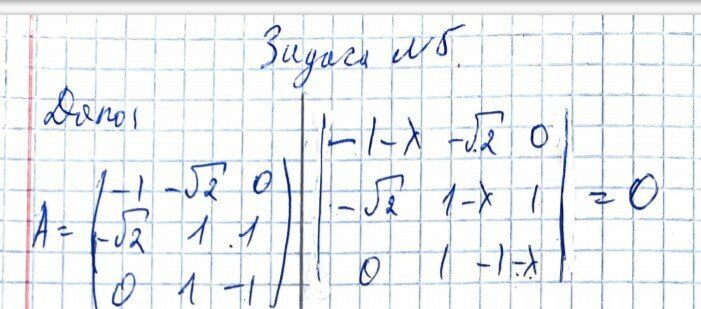 Задача №5.
Дано:
A = (-1 -√2 0
-√2 1 1
0 1 -1)
|-1-λ -√2 0
-√2 1-λ 1
0 1 -1-λ| = 0